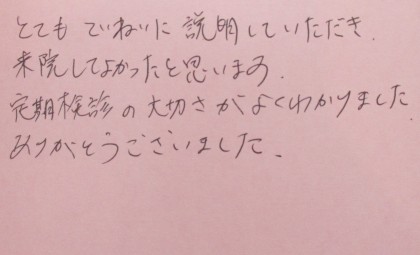 とても ていねいに 説明していただき、
来院してよかったと思います。
定期検診の大切さがよくわかりました
ありがとうございました。